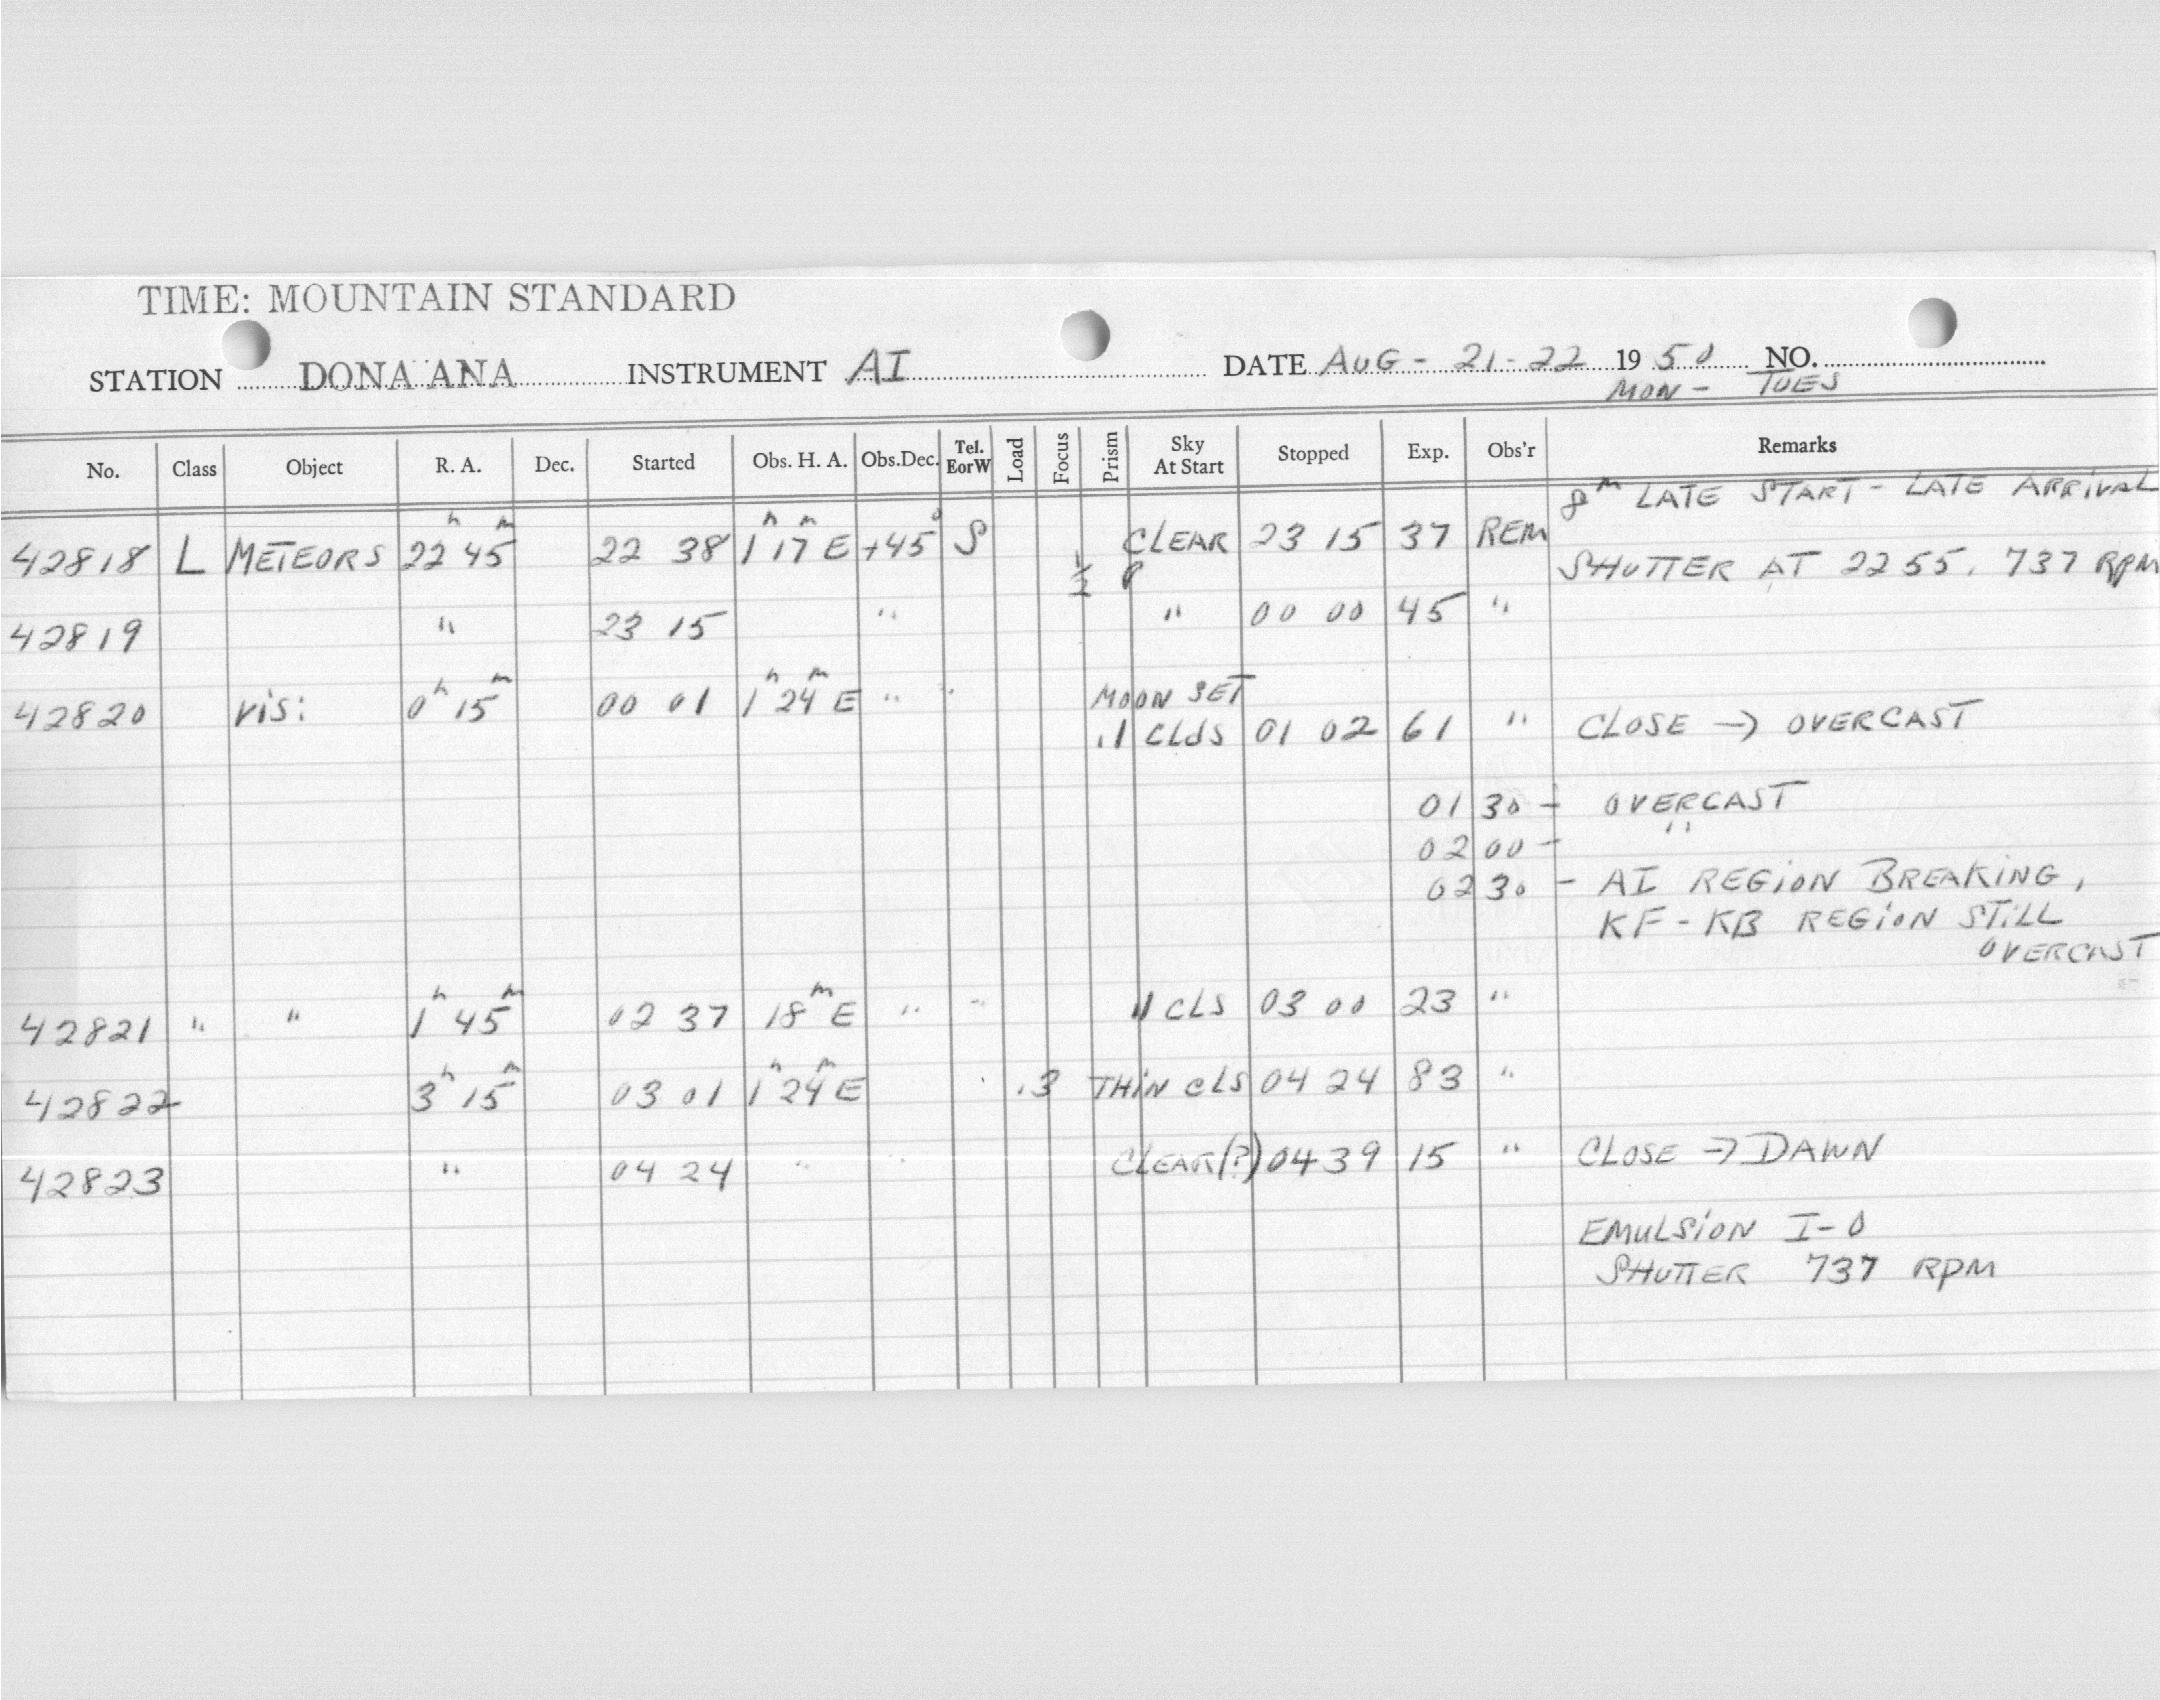 TIME: MOUNTAIN STANDARD
STATION DONA ANA INSTRUMENT AI DATE AUG - 21 - 22 19 50 NO.
MON - TUES
No. Class Object R. A. Dec. Started Obs. H. A. Obs.Dec. Tel. EorW Load Focus Prism Sky At Start Stopped Exp. Obs'r Remarks
8m LATE START - LATE ARRIVAL
42818 L METEORS 22h 45m 22 38 1h 17m E +45° S CLEAR 23 15 37 REM
1/2 SHUTTER AT 22 55. 737 RPM
42819 " 23 15 " " 00 00 45 "
MOON SET
42820 vis: 0h 15m 00 01 1h 24m E " " .1 CLDS 01 02 61 " CLOSE → OVERCAST
01 30 - OVERCAST
02 00 - "
02 30 - AI REGION BREAKING,
KF - KB REGION STILL
OVERCAST
42821 " " 1h 45m 02 37 18m E " " CLS 03 00 23 "
42822 3h 15m 03 01 1h 24m E .3 THIN CLS 04 24 83 "
42823 " 04 24 " " CLEAR(?) 04 39 15 " CLOSE → DAWN
EMULSION I-O
SHUTTER 737 RPM